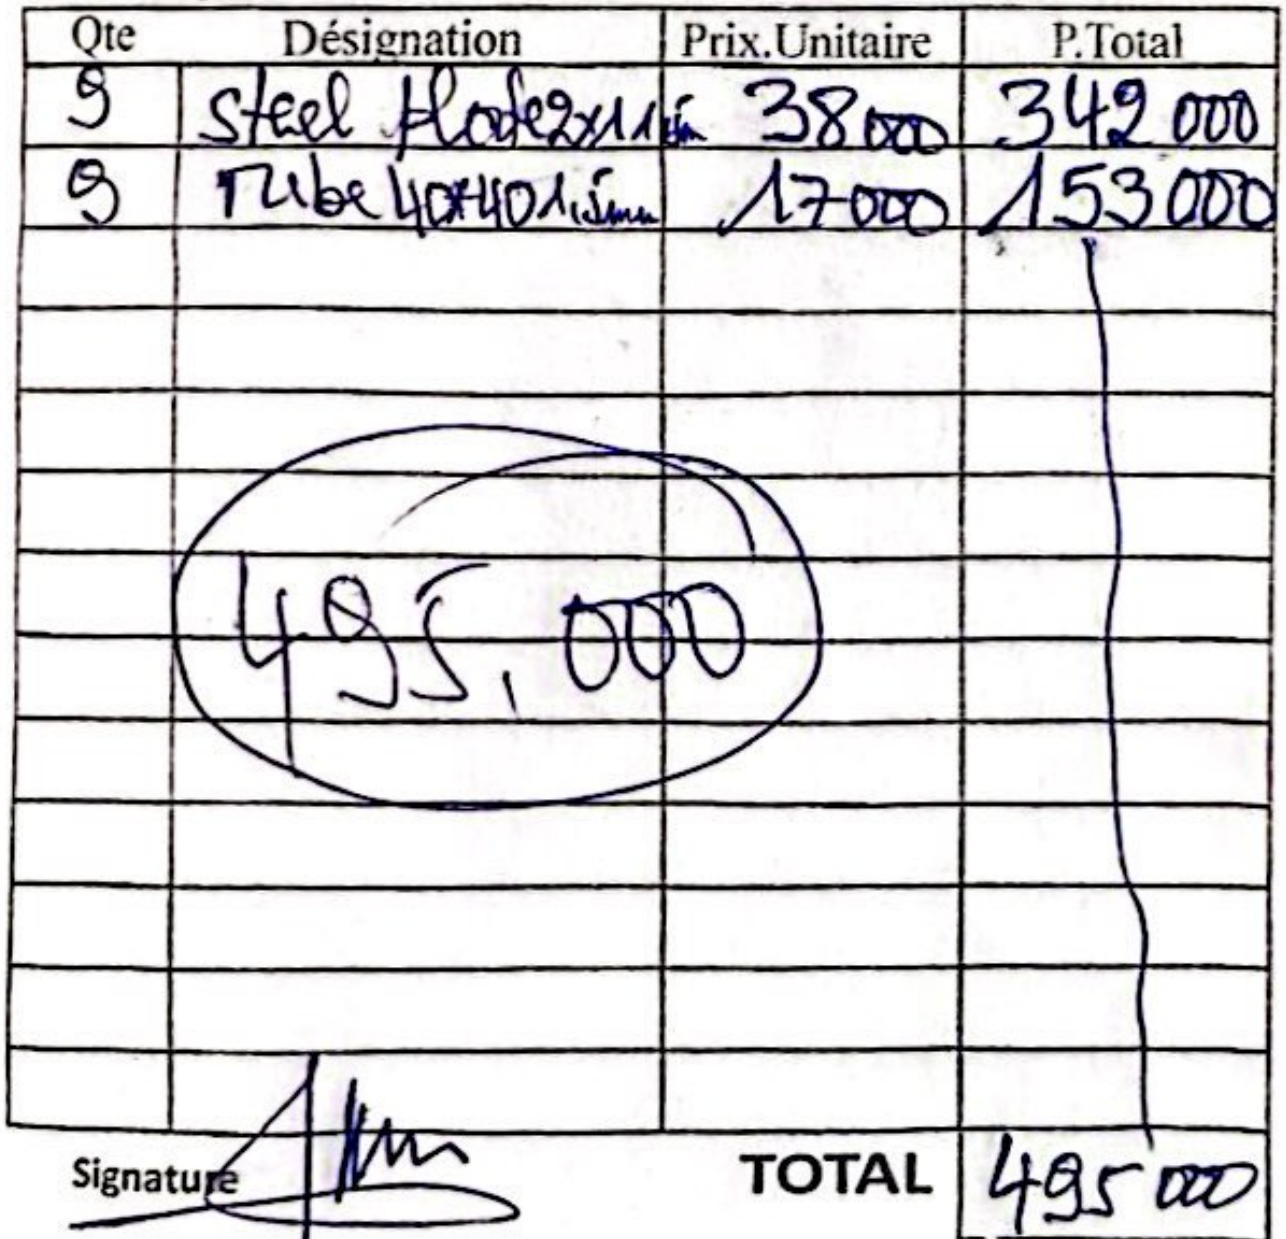 Qte Désignation Prix.Unitaire P.Total
9 Steel 2x1 38000 342 000
9 Tube 40x40 1.5mm 17000 153000
495,000
Signature TOTAL 495 000